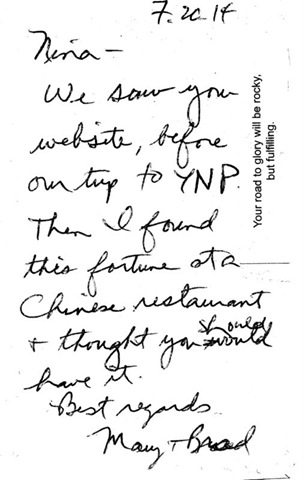 7.20.14
Nina —
We saw your
website, before
our trip to YNP.
Then I found
this fortune at a
Chinese restaurant
+ thought you should
have it.
Best regards
Mary + Brad
Your road to glory will be rocky,
but fulfilling.